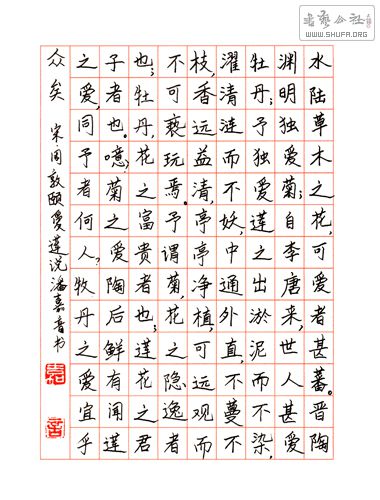 水陆草木之花,可爱者甚蕃。晋陶
渊明独爱菊;自李唐来,世人甚爱
牡丹;予独爱莲之出淤泥而不染,
濯清涟而不妖,中通外直,不蔓不
枝,香远益清,亭亭净植,可远观而
不可亵玩焉。予谓菊,花之隐逸者
也;牡丹,花之富贵者也;莲花之君
子者也。噫!菊之爱陶后鲜有闻莲
之爱,同予者何人?牡丹之爱宜乎
众矣 宋·周敦颐爱莲说 潘嘉音书
嘉
音
书艺公社
WWW.SHUFA.ORG